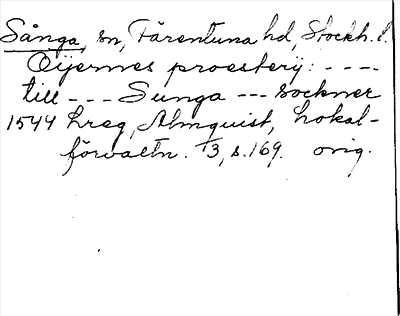 Sånga, sn, Färentuna hd, Stockh. l.
Öijernes proesterij: - - - -
till - - - Sunga --- sockner
1544 Lreg, Almquist, Lokal-
förvaltn. 13, s. 169. orig.